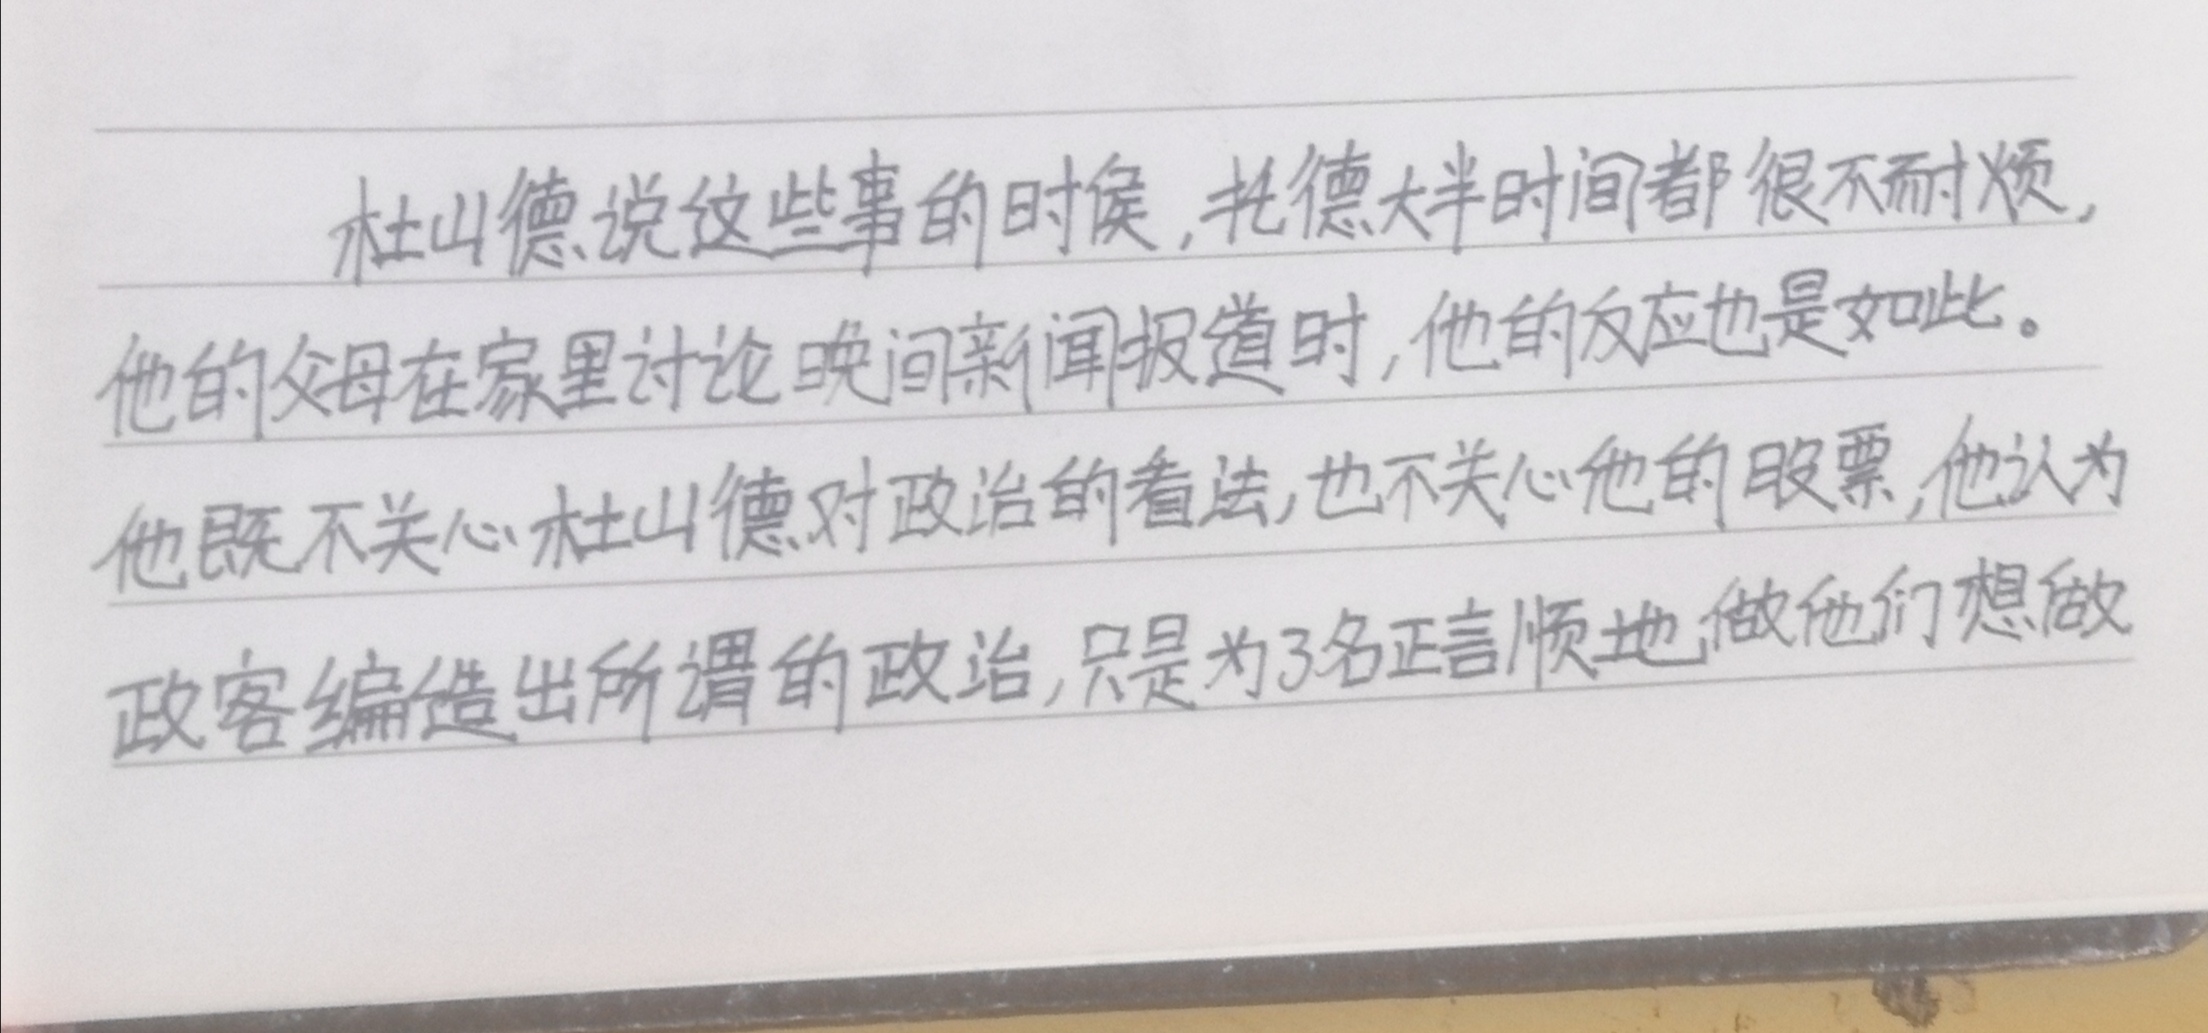 杜山德说这些事的时候,托德大半时间都很不耐烦,
他的父母在家里讨论晚间新闻报道时,他的反应也是如此。
他既不关心杜山德对政治的看法,也不关心他的股票,他认为
政客编造出所谓的政治,只是为了名正言顺地做他们想做